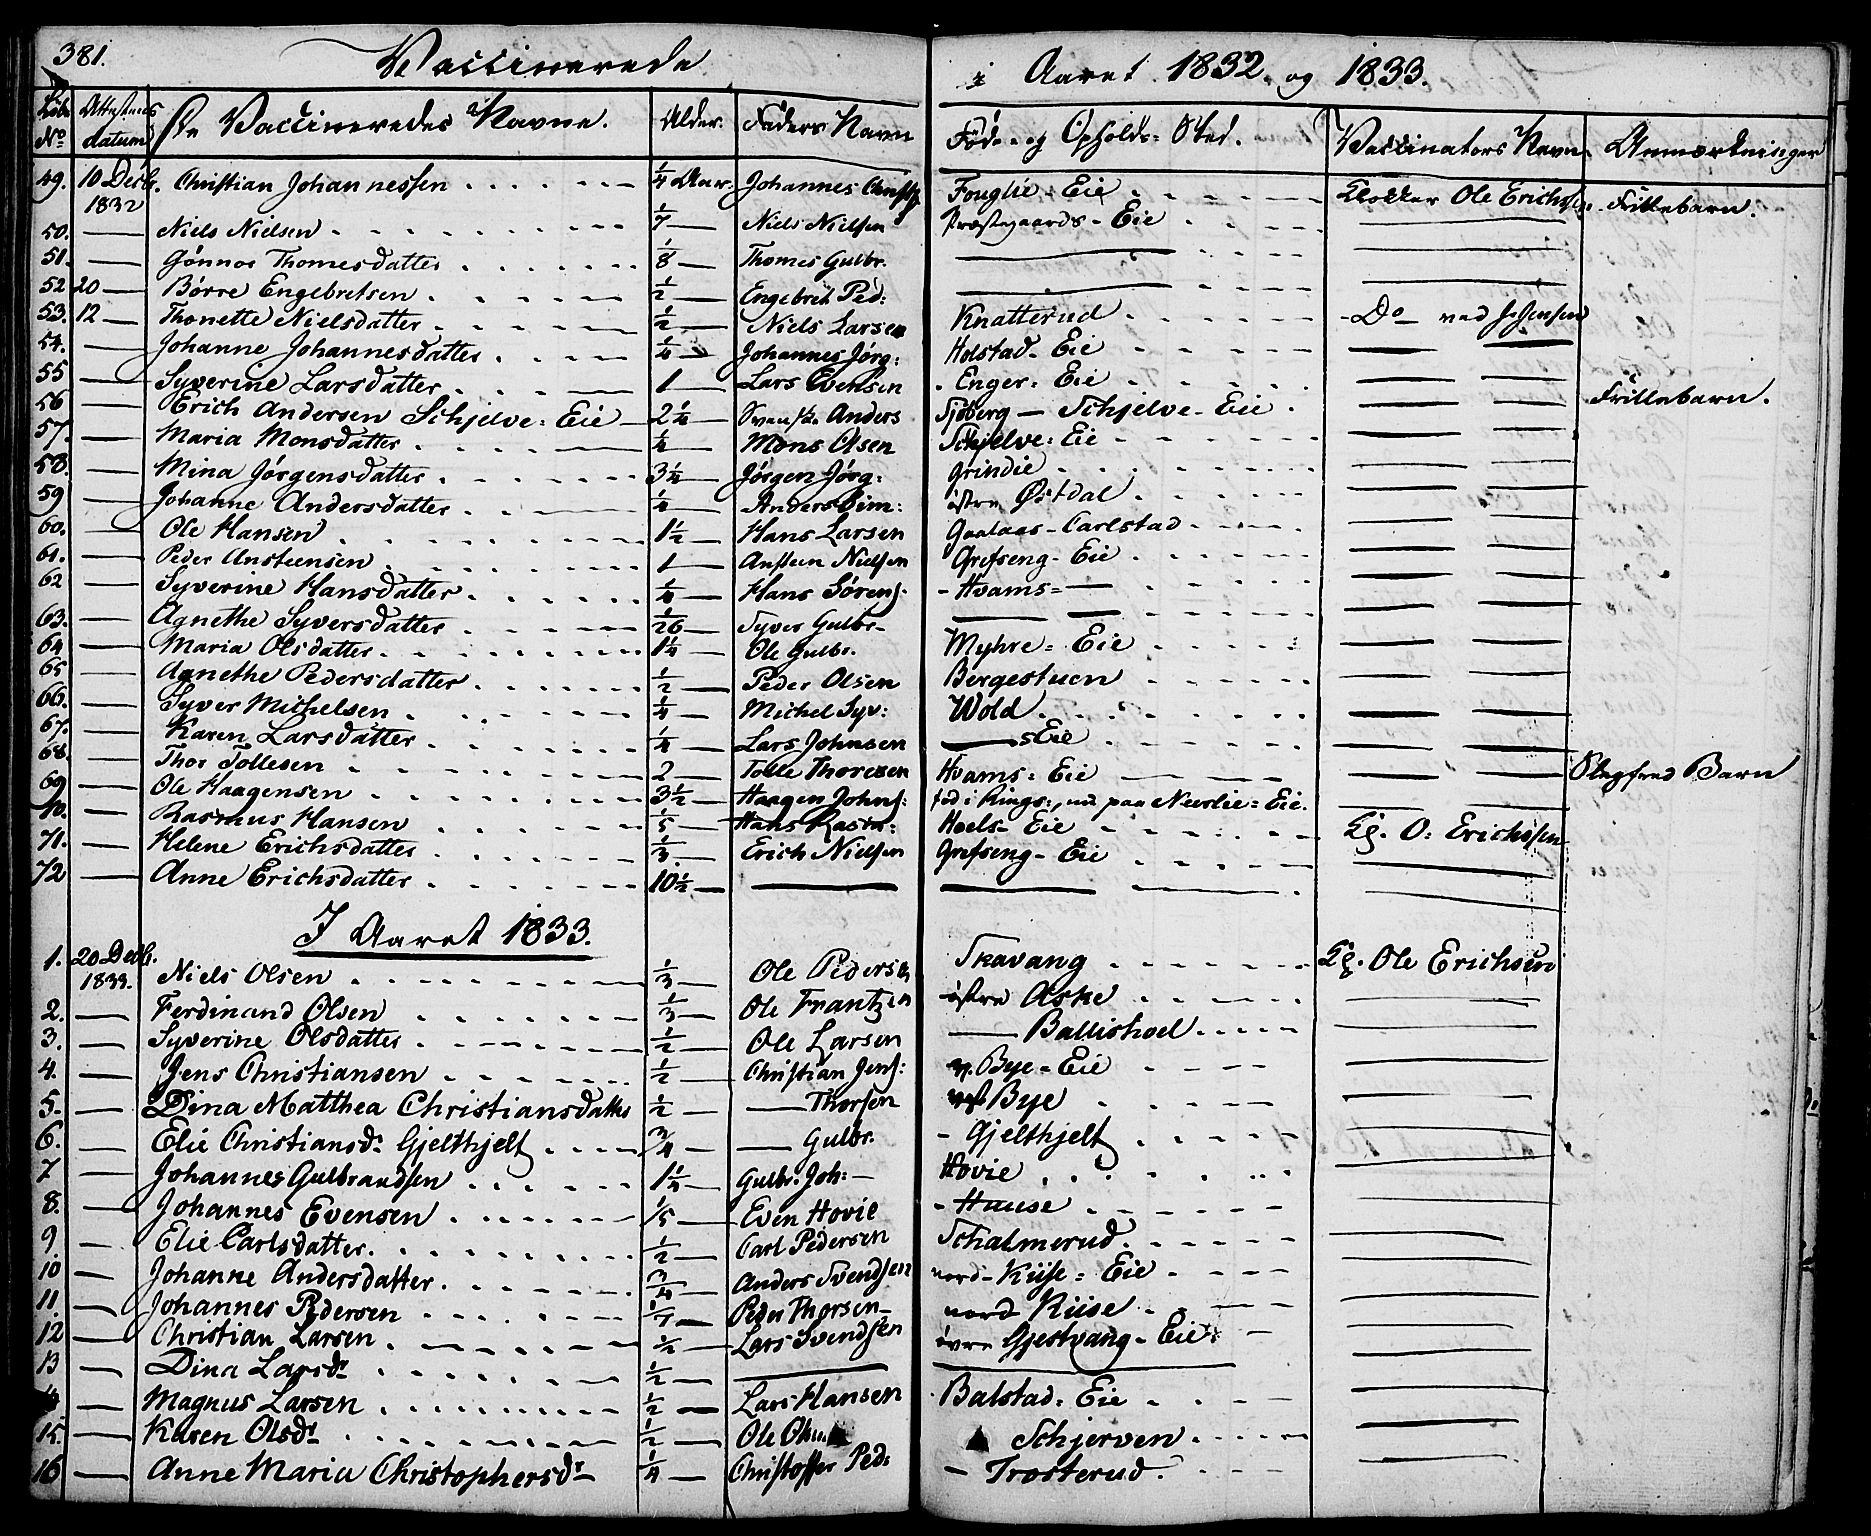 381. Vaccinerede i Aaret 1832. og 1833.
Løbe No. Attestens datum De Vaccineredes Navne. Alder. Faders Navn Føde- og Opholds-Sted. Vaccinators Navn. Anmærkninger
49. 10 Decbr. Christian Johannessen ¼ Aar. Johannes Christ Fouglie-Eie Klokker Ole Erichsen Frillebarn.
1832
50. — Niels Nielsen 1/7 — Niels Nielsen Præstegaards-Eie —
51. — Gønnor Thomesdatter 1/8 — Thomes Gulbr. — —
52 20 — Børre Engebretsen ½ — Engebret Ped: — —
53. 12 — Thonette Nielsdatter ½ — Niels Larsen Knatterud - Do - ved J. Jensen
54. — Johanne Johannesdatter ¼ — Johannes Jørg: Holstad-Eie — —
55 — Syverine Larsdatter 1 — Lars Evensen Enger-Eie — —
56 — Erich Andersen Schjelve-Eie — 2¼ — Svensk. Anders Sjøberg — Schjelve-Eie — — Frillebarn.
57. — Maria Monsdatter ¼ — Mons Olsen Schjelve-Eie — —
58. — Mina Jørgensdatter 3¼ — Jørgen Jørg: Grindie — —
59 — Johanne Andersdatter ¼ — Anders Sim: østre Østdal — —
60. — Ole Hansen 1½ — Hans Larsen Gaalaas-Carlstad — —
61. — Peder Anstensen 1 — Ansteen Nielsen Grefseng-Eie — —
62 — Syverine Hansdatter ¼ — Hans Sørens. - Hvams= — — —
63. — Agnethe Syversdatter 1/26 — Syver Gulbr. — — — —
64 — Maria Olsdatter 1¼ — Ole Gulbr. Myhre-Eie — —
65 — Agnethe Pedersdatter ½ — Peder Olsen Bergestuen — —
66. — Syver Michelsen ¼ — Michel Syv: Wold — —
67. — Karen Larsdatter ¼ — Lars Johnsen — sEie — —
68. — Thor Tollesen 2 — Tolle Thoresen Hvams-Eie — — Slegfred Barn
69 — Ole Haagensen 3½ — Haagen Johns: fød i Rings:, nu paa Neerlie-Eie. — —
70. — Rasmus Hansen 1/5 — Hans Rasm: Hoels-Eie Kl. O: Erichssen
71. — Helene Erichsdatter 1/3 — Erich Nielsen Grefseng-Eie —
72 — Anne Erichsdatter 10½ — — — —
I Aaret 1833.
1. 20 Decbr. 1833. Niels Olsen 1/3 — Ole Pedersen Skavang Kl. Ole Erichsen
2. — Ferdinand Olsen 1/3 — Ole Frantzen østre Aske —
3. — Syverine Olsdatter ½ — Ole Larsen — Ballishoel —
4. — Jens Christiansen ½ — Christian Jens: n. Bye-Eie —
5. — Dina Matthea Christiansdatter ½ — — Thorsen Bye —
6. — Elie Christiansdr Gjelthjelt ¾ — — Gulbr. - Gjelthjelt —
7 — Johannes Gulbrandsen 1¼ — Gulbr. Joh: — Hovie —
8. — Johannes Evensen 1/5 — Even Hovie - Huuse —
9 — Elie Carlsdatter. ½ — Carl Pedersen Schalmerud —
10 — Johanne Andersdatter. ¾ — Anders Svendsen nord-Kiise-Eie —
11. — Johannes Pedersen 1/7 — Peder Thorsen — nord Kiise —
12 — Christian Larsen ½ — Lars Svendsen øvre Gjestvang-Eie —
13 — Dina Larsdr ½ — — — —
14 — Magnus Larsen ½ — Lars Hansen Balstad-Eie —
15. — Karen Olsdr ½ — Ole Schjerven —
16 — Anne Maria Christophersdr ¼ — Christoffer Ped: — Trosterud. —